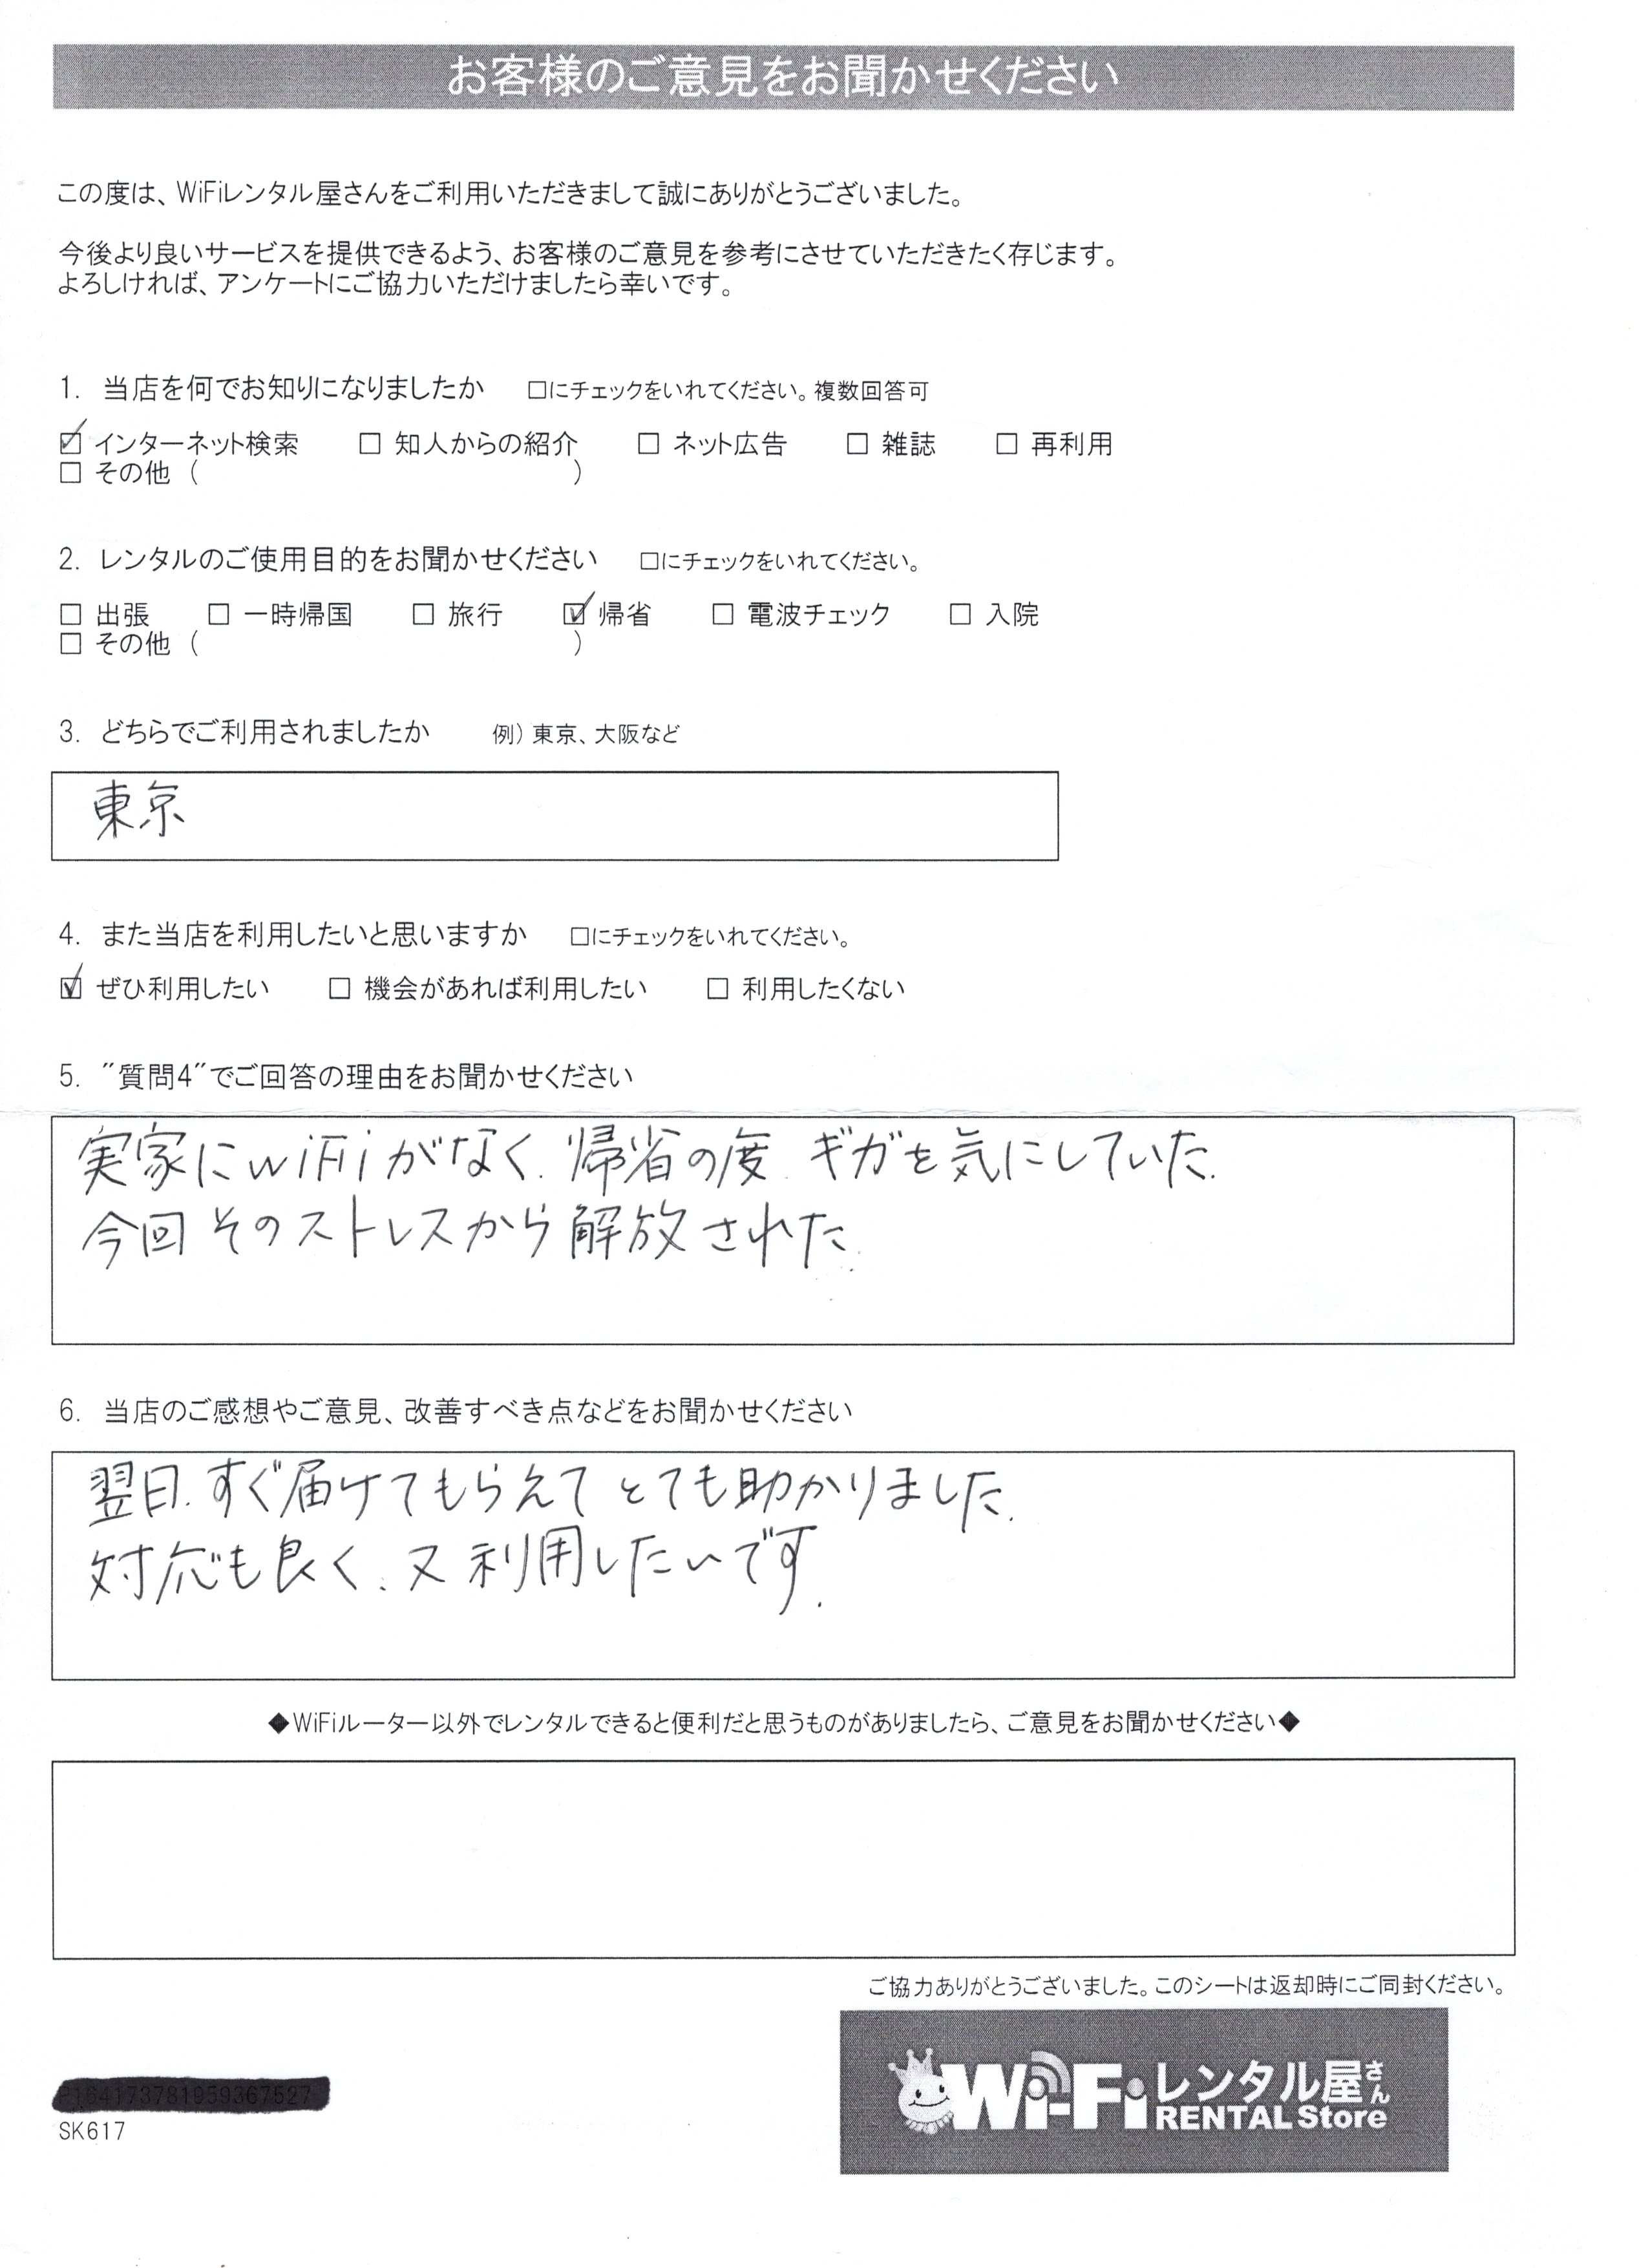 お客様のご意見をお聞かせください
この度は、WiFiレンタル屋さんをご利用いただきまして誠にありがとうございました。
今後より良いサービスを提供できるよう、お客様のご意見を参考にさせていただきたく存じます。
よろしければ、アンケートにご協力いただけましたら幸いです。
1. 当店を何でお知りになりましたか □にチェックをいれてください。複数回答可
☑ インターネット検索 □ 知人からの紹介 □ ネット広告 □ 雑誌 □ 再利用
□ その他 ( )
2. レンタルのご使用目的をお聞かせください □にチェックをいれてください。
□ 出張 □ 一時帰国 □ 旅行 ☑ 帰省 □ 電波チェック □ 入院
□ その他 ( )
3. どちらでご利用されましたか 例) 東京、大阪など
東京
4. また当店を利用したいと思いますか □にチェックをいれてください。
☑ ぜひ利用したい □ 機会があれば利用したい □ 利用したくない
5. ”質問4”でご回答の理由をお聞かせください
実家にwiFiがなく、帰省の度 ギガを気にしていた。
今回そのストレスから解放された。
6. 当店のご感想やご意見、改善すべき点などをお聞かせください
翌日、すぐ届けてもらえてとても助かりました。
対応も良く、又利用したいです。
◆WiFiルーター以外でレンタルできると便利だと思うものがありましたら、ご意見をお聞かせください◆
ご協力ありがとうございました。このシートは返却時にご同封ください。
SK617
Wi-Fiレンタル屋さん
RENTAL Store